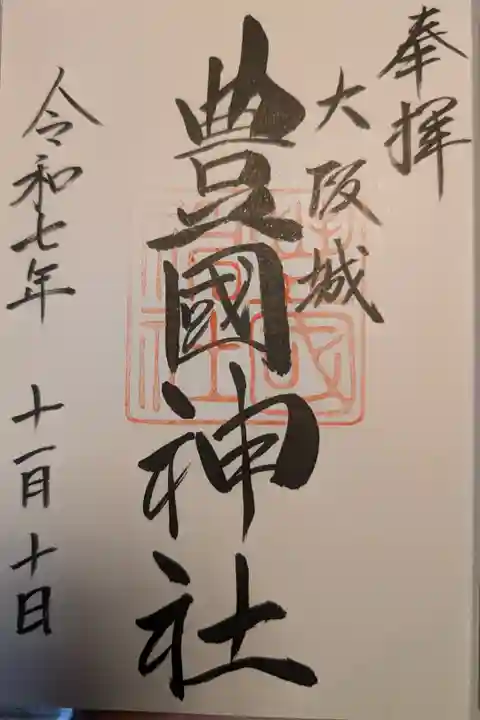 奉拝
大阪城
豊國神社
令和七年 十一月十日
豊國神社